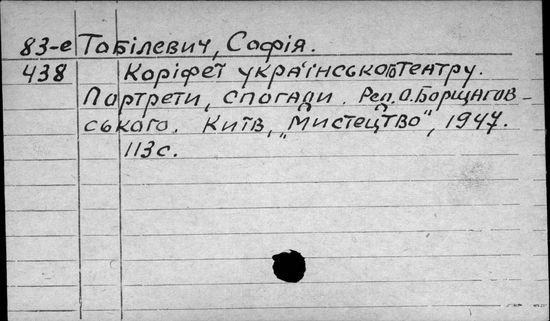 83-е Тобілевич, Софія.
438 Коріфеї українського театру.
Портрети, спогади. Ред. О. Борщагов-
ського. Київ, „Мистецтво", 1947.
113 с.